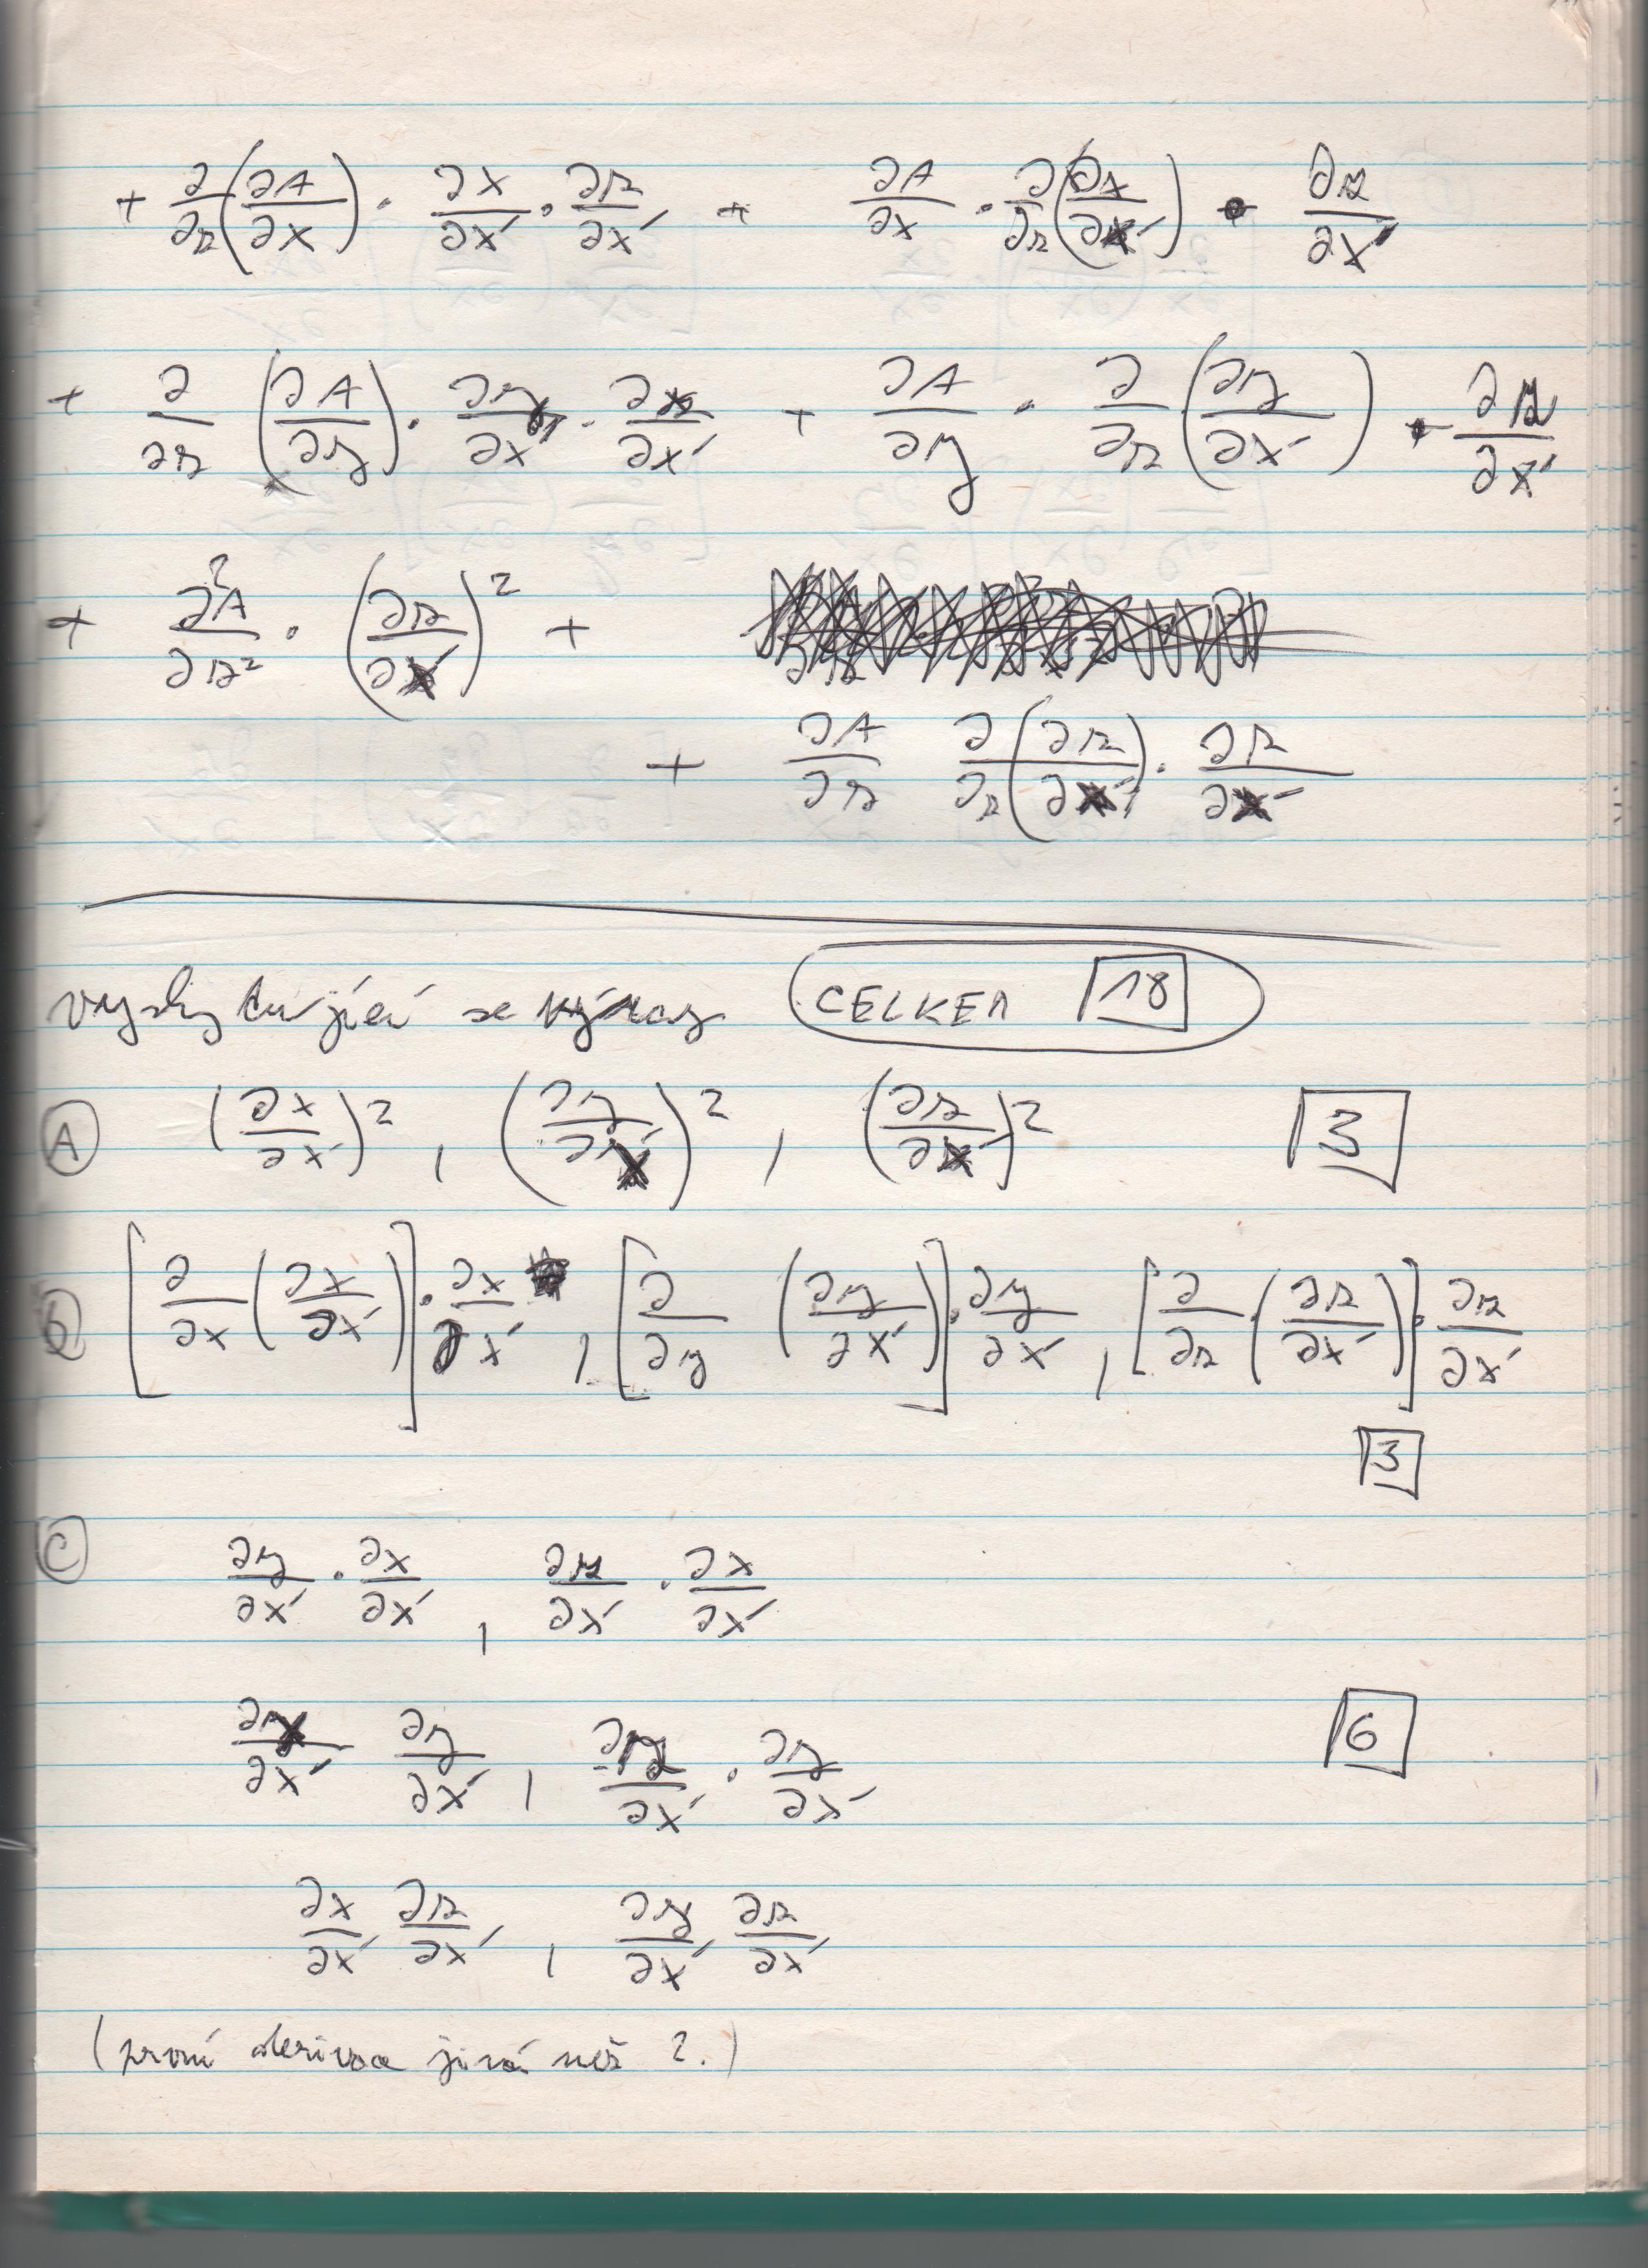 + ∂/∂z (∂A/∂x) · ∂x/∂x′ · ∂z/∂x′ + ∂A/∂x · ∂/∂z (∂x/∂x′) · ∂z/∂x′
+ ∂/∂z (∂A/∂y) · ∂y/∂x′ · ∂z/∂x′ + ∂A/∂y · ∂/∂z (∂y/∂x′) · ∂z/∂x′
+ ∂²A/∂z² · (∂z/∂x′)² +
+ ∂A/∂z ∂/∂z (∂z/∂x′) · ∂z/∂x′
vyskytující se výrazy CELKEM 18
A (∂x/∂x′)² , (∂y/∂x′)² , (∂z/∂x′)² 3
B [∂/∂x (∂x/∂x′)] · ∂x/∂x′ , [∂/∂y (∂y/∂x′)] · ∂y/∂x′ , [∂/∂z (∂z/∂x′)] · ∂z/∂x′
3
C ∂y/∂x′ · ∂x/∂x′ , ∂z/∂x′ · ∂x/∂x′
∂x/∂x′ ∂y/∂x′ , ∂z/∂x′ · ∂y/∂x′ 6
∂x/∂x′ ∂z/∂x′ , ∂y/∂x′ ∂z/∂x′
(první derivace jiná než 2.)